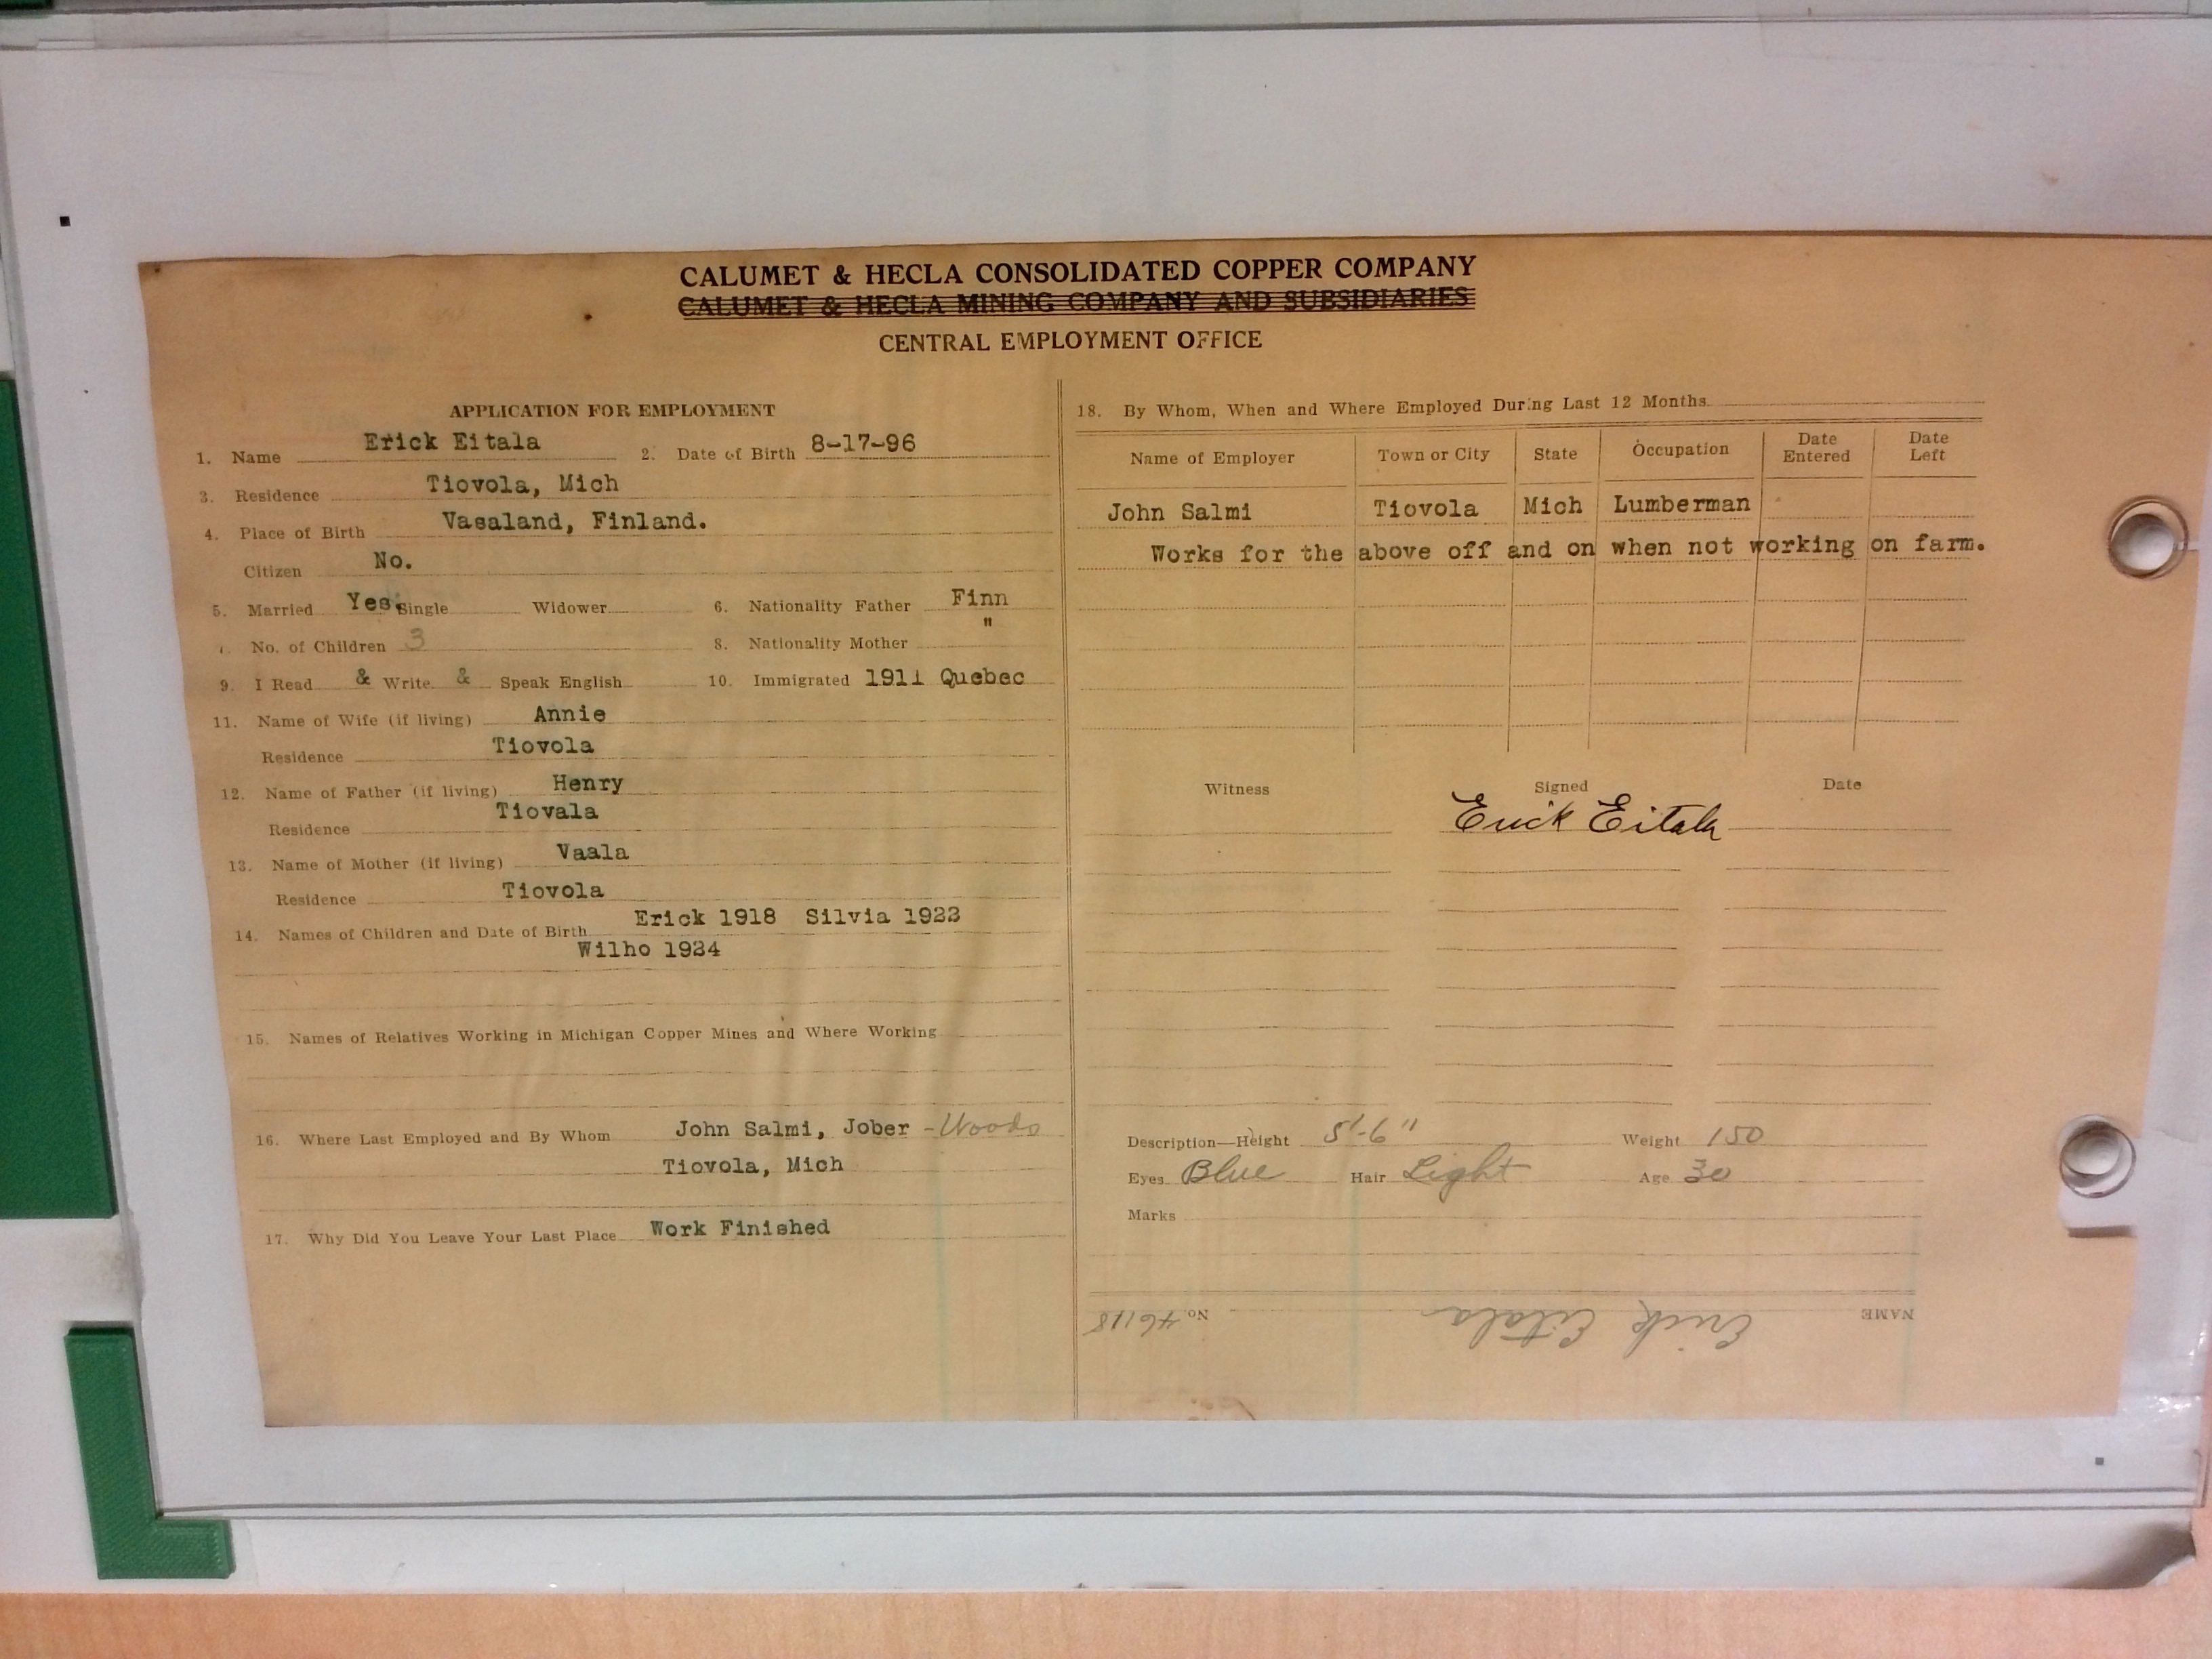 CALUMET & HECLA CONSOLIDATED COPPER COMPANY
CALUMET & HECLA MINING COMPANY AND SUBSIDIARIES
CENTRAL EMPLOYMENT OFFICE
APPLICATION FOR EMPLOYMENT
1. Name Erick Eitala 2. Date of Birth 8-17-96
3. Residence Tiovola, Mich
4. Place of Birth Vasaland, Finland.
Citizen No.
5. Married Yes. Single Widower 6. Nationality Father Finn
7. No. of Children 3 8. Nationality Mother "
9. I Read & Write & Speak English 10. Immigrated 1911 Quebec
11. Name of Wife (if living) Annie
Residence Tiovola
12. Name of Father (if living) Henry
Residence Tiovala
13. Name of Mother (if living) Vaala
Residence Tiovola
14. Names of Children and Date of Birth Erick 1918 Silvia 1922
Wilho 1924
15. Names of Relatives Working in Michigan Copper Mines and Where Working
16. Where Last Employed and By Whom John Salmi, Jober - Woods
Tiovola, Mich
17. Why Did You Leave Your Last Place Work Finished
18. By Whom, When and Where Employed During Last 12 Months
Name of Employer Town or City State Occupation Date Entered Date Left
John Salmi Tiovola Mich Lumberman
Works for the above off and on when not working on farm.
Witness Signed Date
Erick Eitala
Description—Height 5'-6" Weight 150
Eyes Blue Hair Light Age 30
Marks
NAME Erick Eitala No. 46118